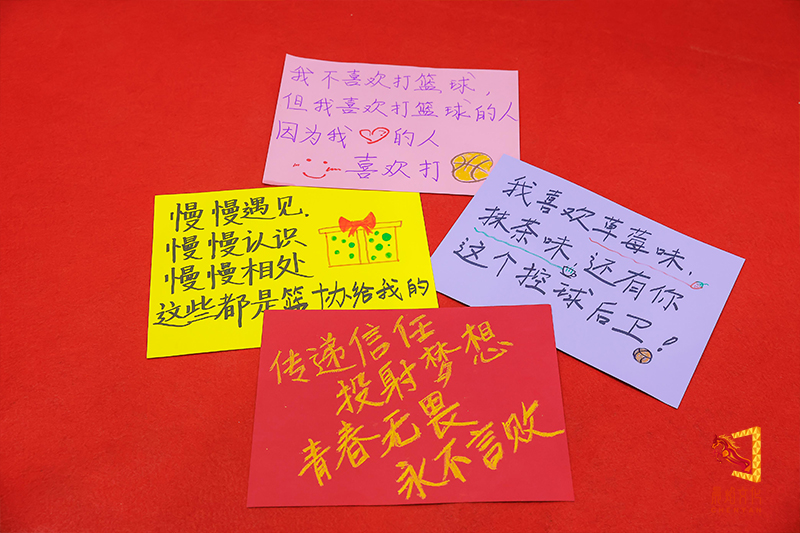 我不喜欢打篮球，
但我喜欢打篮球的人
因为我 的人
喜欢打
慢慢遇见.
慢慢认识
慢慢相处
这些都是篮协给我的
我喜欢草莓味、
抹茶味,还有你
这个控球后卫！
传递信任
投射梦想
青春无畏
永不言败